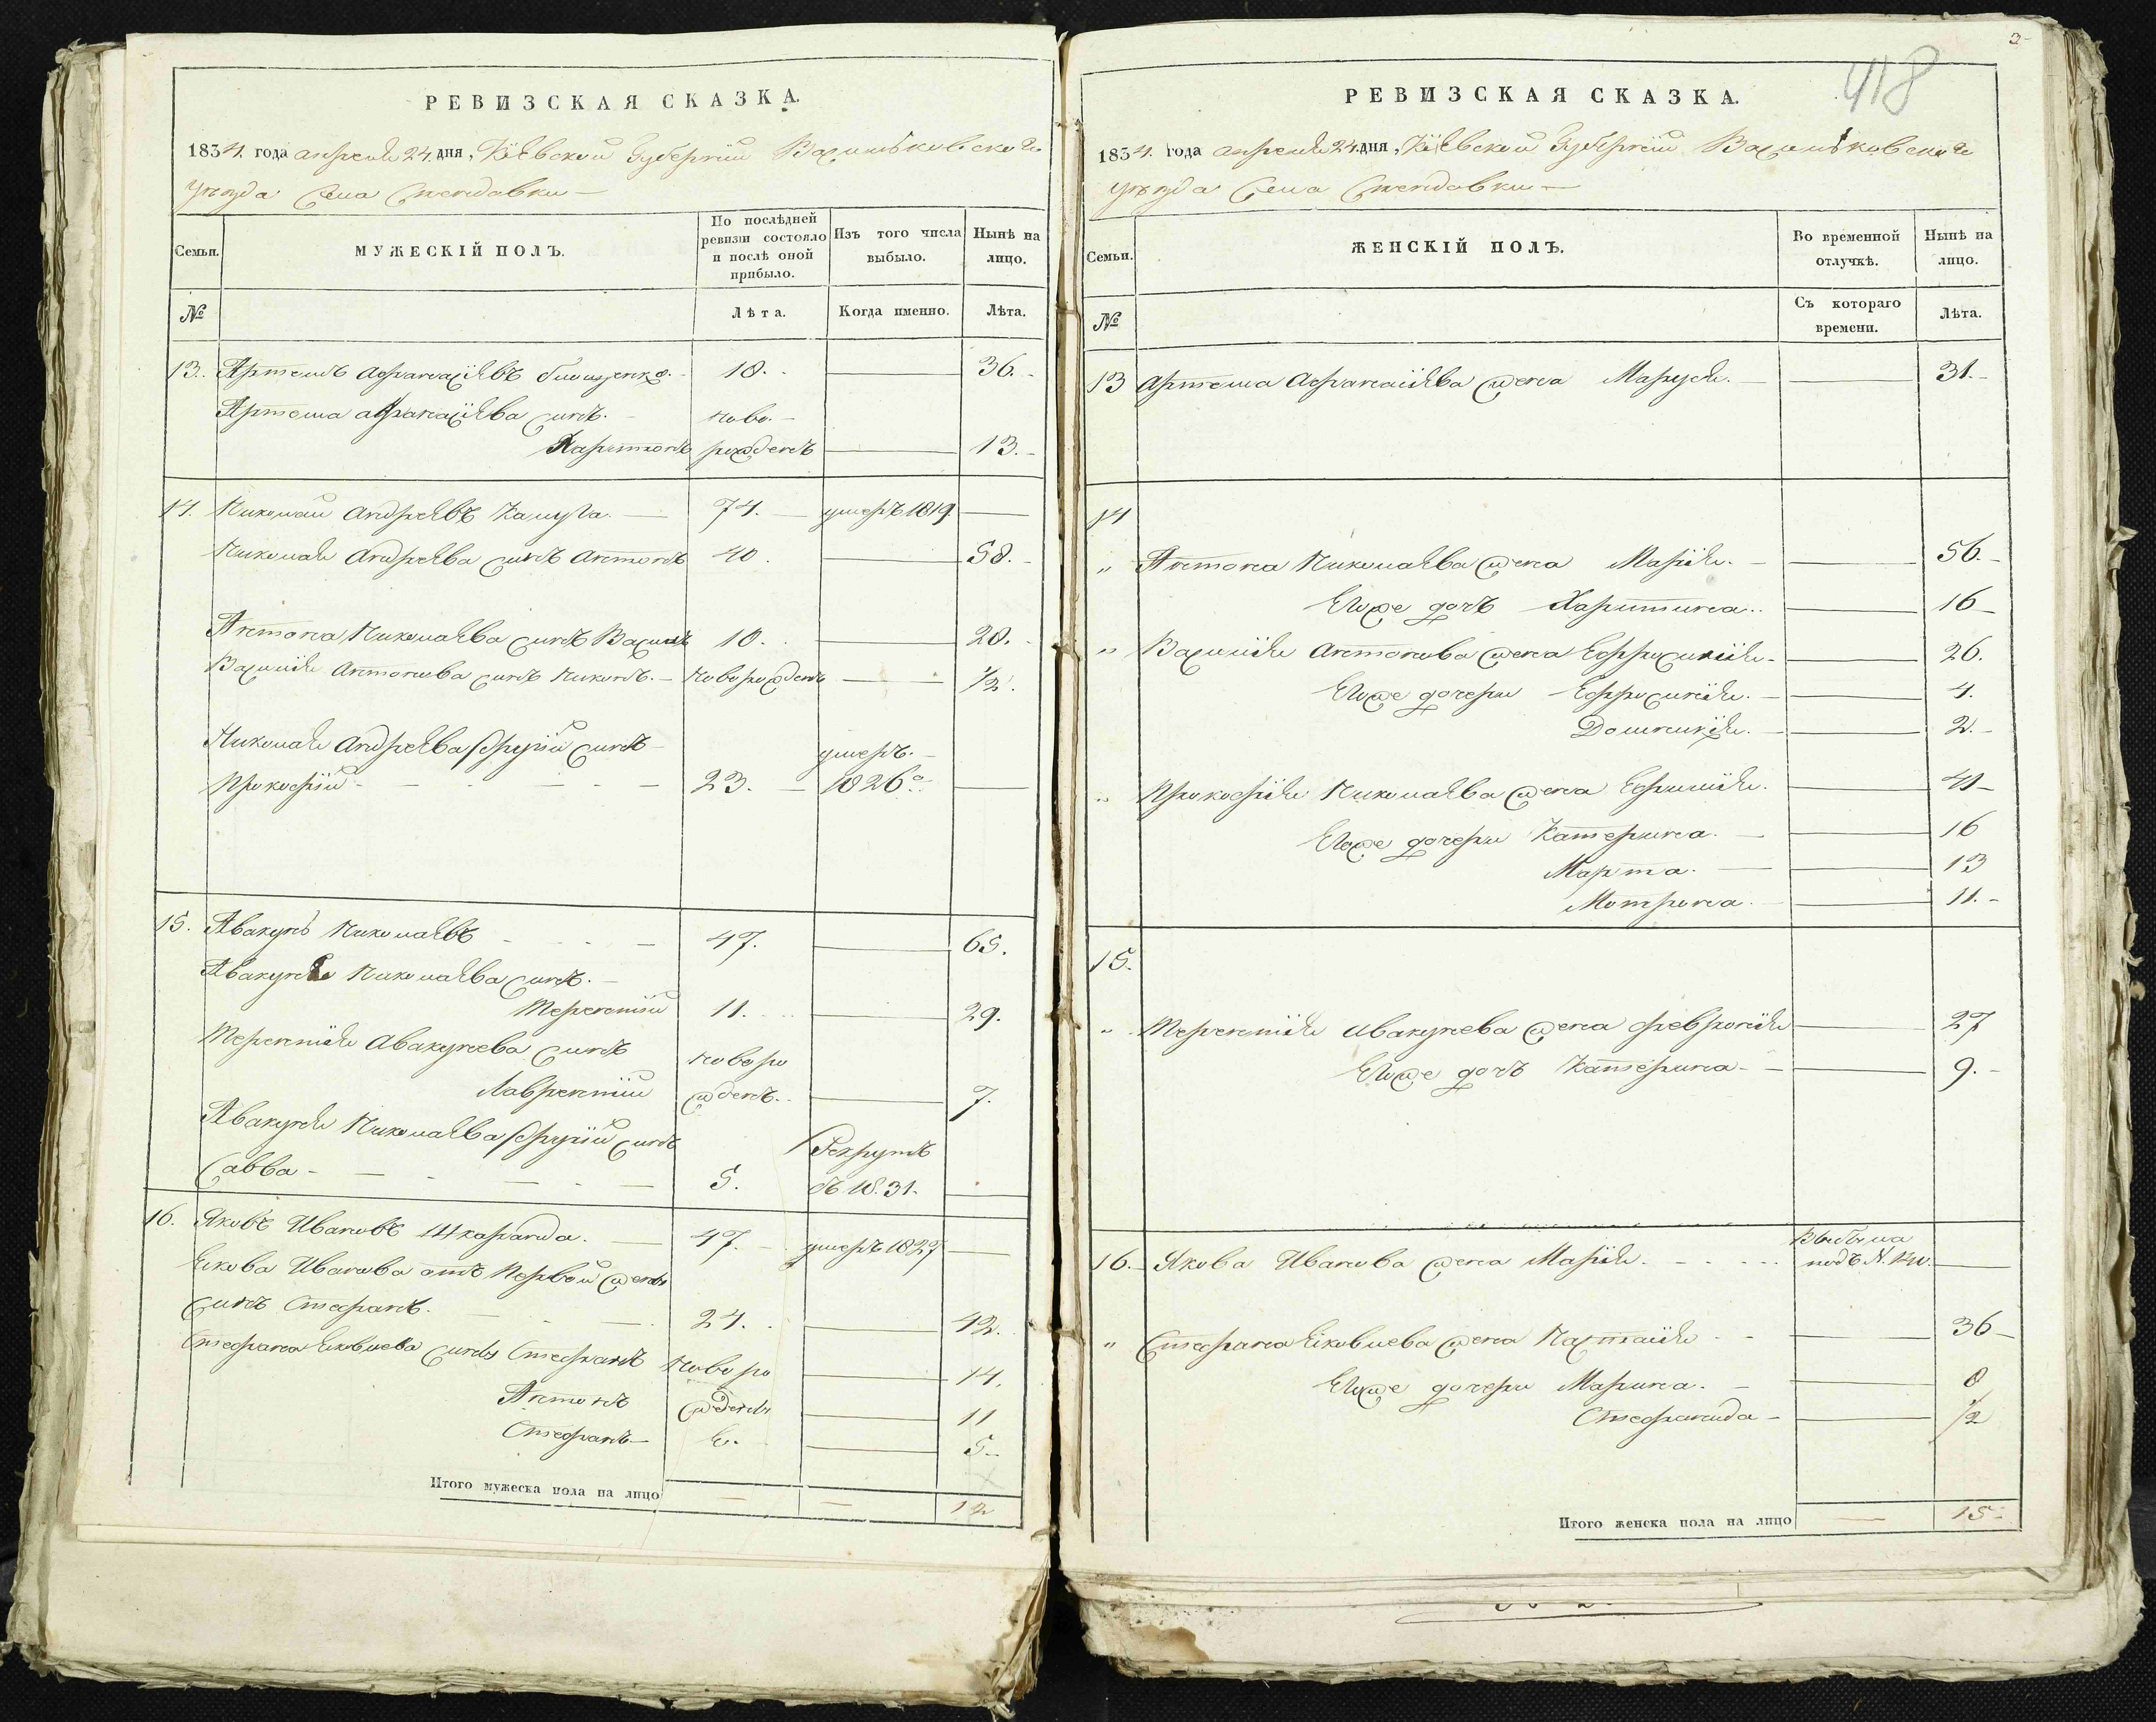 РЕВИЗСКАЯ СКАЗКА.
1834. года апреля 24. дня, Кіевской Губерніи Васильковского
уезда Села Снетдавки —
Семьи.
МУЖЕСКІЙ ПОЛЪ.
По послѣдней ревизіи состояло и послѣ оной прибыло.
Изъ того числа выбыло.
Нынѣ на лицо.
№
Лѣта.
Когда именно.
Лѣта.
13. Артемъ Афанасіевъ 18. — 36.
Артема Афанасіева сынъ. ново-
Харитонъ рожденъ — 13.
14. Николай Андреевъ Калуга. — 74. — умеръ 1819 —
Николая Андреева сынъ Антонъ 40. — 58.
Антона Николаева сынъ Василь 10. — 28.
Василія Антонова сынъ Никонъ. — Новорожденъ — 1/2.
Николая Андреева другій сынъ — умеръ. —
Прокофій — 23. — 1826го —
15. Авакумъ Николаевъ — 47. — 65.
Авакума Николаева сынъ. —
Терентій 11. — 29.
Терентія Авакумова сынъ новоро
Лаврентій жденъ. — 7.
Авакума Николаева другій сынъ Рекрутъ
Савва — 5. въ 18.31. —
16. Яковъ Ивановъ Шкарапда. — 47. — умеръ 1827 —
Якова Иванова отъ первой жены
сынъ Стефанъ. — 24. — 42.
Стефана Яковлева сыны Стефанъ Новоро — 14.
Антонъ ждены — 11
Стефанъ — е. — 5
Итого мужеска пола на лицо — — 12
418
РЕВИЗСКАЯ СКАЗКА.
1834. года апреля 24. дня, Кіевской Губерніи Васильковского
уезда Села Снетдавки —
Семьи.
ЖЕНСКІЙ ПОЛЪ.
Во временной отлучкѣ.
Нынѣ на лицо.
№
Съ котораго времени.
Лѣта.
13 Артема Афанасіева жена Маруся. — 31.
14
" Антона Николаева жена Марія. — 56.
Егоже дочь Харитина. — 16
" Василія Антонова жена Ефросинія — 26.
Егоже дочери Ефросинія. — 4.
Домникія. — 2.
" Прокофія Николаева жена Ефимія. — 41
Егоже дочери Катерина. — 16
Марта. — 13
Мотрона — 11.
15.
" Терентія Авакумова жена Февронія — 27
Егоже дочь Катерина — 9.
16. Якова Иванова жена Марія. — Выбыла
подъ N.
" Стефана Яковлева жена Настасія — 36
Егоже дочери Марина. — 8
Стефанида — 1/2
Итого женска пола на лицо — 15